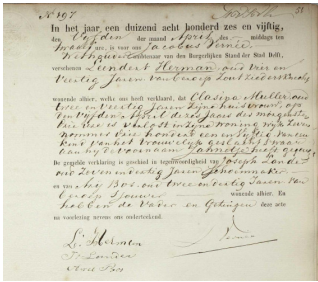 No 197
In het jaar, een duizend acht honderd zes en vijftig,
den Vijfden der maand April des middags ten
ure, is voor ons Jacobus Vernée
Wethouder Ambtenaar van den Burgerlijken Stand der Stad Delft,
verschenen Leendert Hermen oud Vier en
Veertig Jaren van beroep
wonende alhier, welke ons heeft verklaard, dat Clasina Muller oud
twee en Veertig Jaren zijne huisvrouw, op
den Vijfden April dezes Jaars des morgens
Vier ure in zijne woning Wijk Zeven
nommer Vier honderd en Vijftig van een
kind van het Vrouwelijk geslacht is
aan hij de voornaam Jannetje heeft gegeven
De gezegde verklaring is geschied in tegenwoordigheid van Joseph Lander
oud Zeven en dertig Jaren Schoenmaker
en van Arij Bos, oud twee en dertig Jaren van
beroep Sjouwer wonende alhier. En
hebben de Vader en Getuigen deze acte
na voorlezing nevens ons onderteekend.
L. Hermen
J. Vernée
J. Lander
Arie Bos